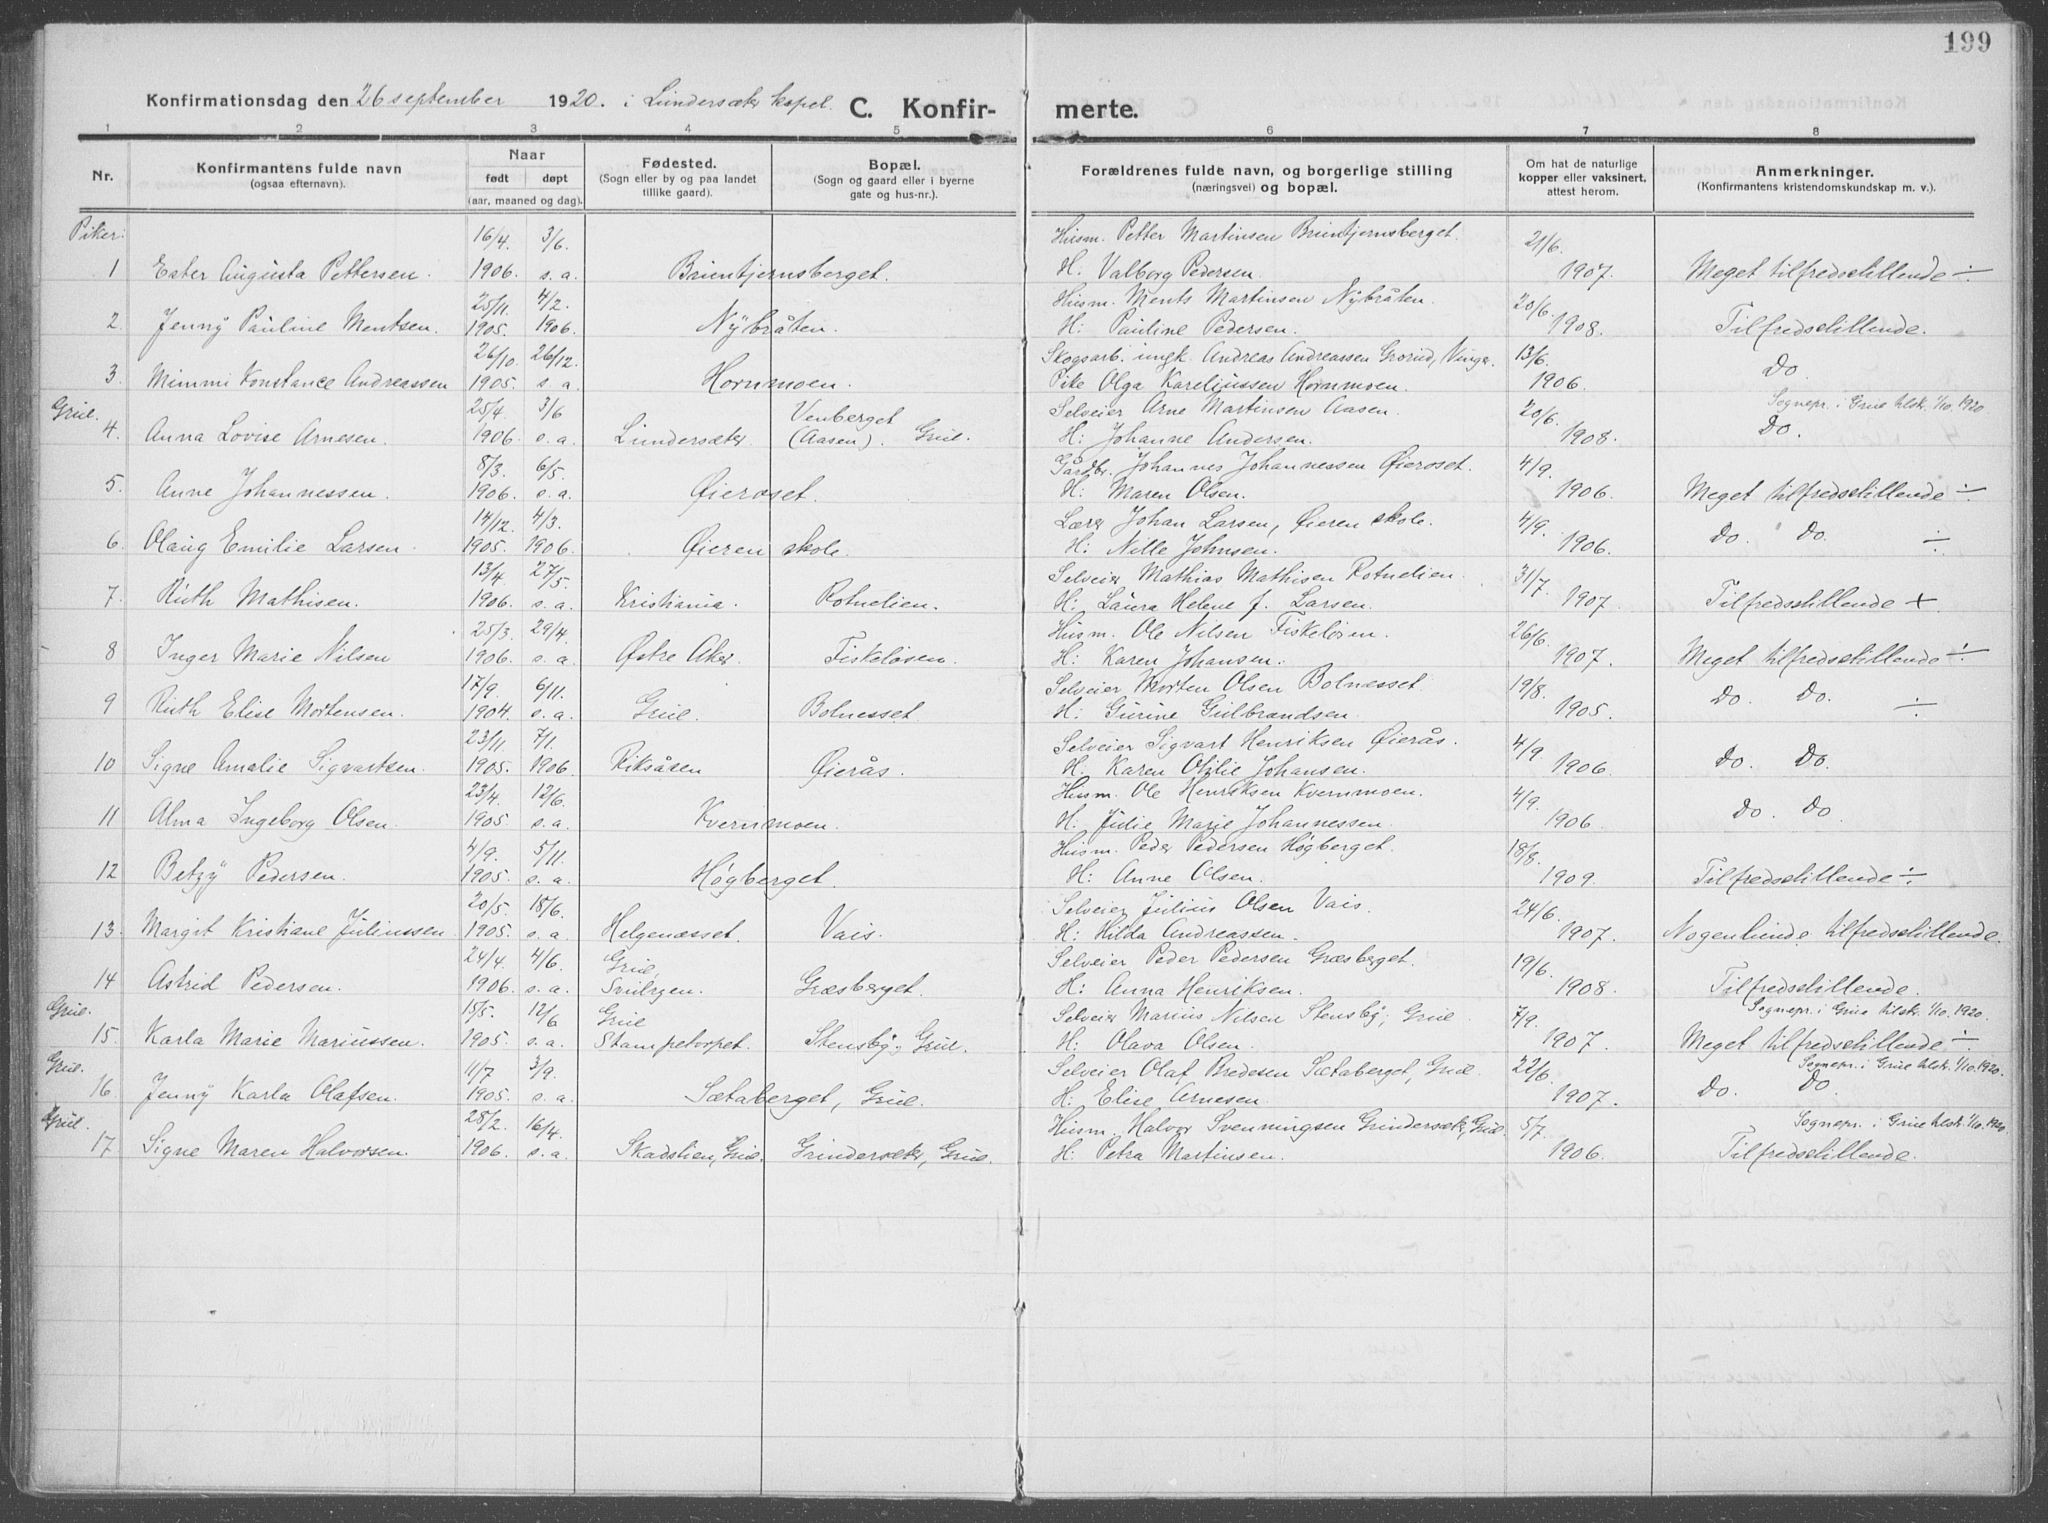 199
Konfirmationsdag den 26 september 1920. i Lundersæter kapel. C. Konfirmerte.
1 2 3 4 5 6 7 8
Nr. Konfirmantens fulde navn (ogsaa efternavn). Naar født døpt (aar, maaned og dag). Fødested. (Sogn eller by og paa landet tillike gaard). Bopæl. (Sogn og gaard eller i byerne gate og hus-nr.). Forældrenes fulde navn, og borgerlige stilling (næringsvei) og bopæl. Om hat de naturlige kopper eller vaksinert, attest herom. Anmerkninger. (Konfirmantens kristendomskundskap m. v.).
Piker: 16/4. 3/6. Husm. Petter Martinsen Brientjernsberget. 21/6.
1 Ester Augusta Pettersen. 1906. s. a. Brientjernsberget. H. Valborg Pedersen. 1907. Meget tilfredsstillende ÷
25/11. 4/2. Husm. Ments Martinsen Nÿbråten. 20/6.
2. Jennÿ Pauline Mentsen. 1905. 1906. Nÿbråten. H: Pauline Pedersen. 1908. Tilfredsstillende.
26/10. 26/12. Skogsarb. ungk. Andreas Andreassen Grorud, Vinger 13/6.
3. Mimmi Konstance Andreassen 1905. s. a. Hornmoen. Pike Olga Kareliussen Hornmoen. 1906. Do
Grue. 25/4. 3/6 Venberget Selveier Arne Martinsen Aasen. 20/6. Sognepr. i Grue tilsk. 1/10. 1920
4. Anna Lovise Arnesen. 1906. s. a. Lundersæter. (Aasen). Grue. H: Johanne Andersen. 1908. Do.
8/3. 6/5. Gårdbr. Johannes Johannessen Øieroset. 4/9.
5. Anne Johannessen. 1906. s. a. Øieroset. H: Maren Olsen. 1906. Meget tilfredsstillende ÷
14/12. 4/3. Lærer Johan Larsen, Øieren skole. 4/9.
6. Olaug Emilie Larsen. 1905. 1906. Øieren skole. H: Nille Johnsen. 1906. Do. Do. ÷
13/4. 27/5. Selveier Mathias Mathisen Rotnelien. 31/7.
7. Ruth Mathisen. 1906. s. a. Kristiania. Rotnelien. H: Laura Helene f. Larsen. 1907. Tilfredsstillende +
25/3. 29/4. Husm. Ole Nilsen Fiskeløsen. 26/6.
8 Inger Marie Nilsen 1906. s. a. Østre Aker. Fiskeløsen. H: Karen Johansen. 1907. Meget tilfredsstillende ÷
17/9. 6/11. Selveier Morten Olsen Bolnesset. 19/8.
9 Ruth Elise Mortensen. 1904. s. a. Grue. Bolnesset H: Gurine Gulbrandsen. 1905. Do. Do. ÷
23/11. 7/1. Selveier Sigvart Henriksen Øierås. 4/9.
10 Signe Amalie Sigvartsen. 1905. 1906. Riksåsen Øierås. H. Karen Otilie Johansen. 1906. Do. Do.
23/4. 12/6. Husm. Ole Henriksen Kvernmoen. 4/9.
11 Alma Ingeborg Olsen. 1905. s. a. Kvernmoen. H. Julie Marie Johannessen. 1906. Do. Do.
4/9. 5/11. Husm. Peder Pedersen Høgberget. 18/8.
12 Betzÿ Pedersen. 1905. s. a. Høgberget. H: Anne Olsen. 1909. Tilfredsstillende ÷
20/5. 18/6. Selveier Julius Olsen Vais. 24/6.
13. Margit Kristiane Juliussen 1905. s. a. Helgenæsset. Vais. H: Hilda Andreassen. 1907. Nogenlunde tilfredsstillende.
24/4. 4/6. Grue, Selveier Peder Pedersen Græsberget. 19/6.
14 Astrid Pedersen. 1906. s. a. Græsberget. H: Anna Henriksen. 1908. Tilfredsstillende.
Grue. 15/5. 12/6 Grue Selveier Marius Nilsen Stensbÿ, Grue 7/9. Sognepr. i Grue tilsk. 1/10. 1920.
15. Karla Marie Mariussen. 1905. s. a. Stampetorpet. Stensbÿ, Grue. H: Olava Olsen. 1907. Meget tilfredsstillende ÷
Grue. 11/7 3/9. Selveier Olaf Bredesen Sætaberget, Grue. 22/6. Sognepr. i Grue tilsk. 1/10. 1920.
16. Jennÿ Karla Olafsen. 1905. s. a. Sætaberget, Grue. H: Elise Arnesen. 1907. Do. Do
Grue. 28/2. 16/4. Husm. Halvor Svenningsen Grindersæter, Grue. 5/7. Sognepr. i Grue tilsk. 1/10. 1920
17. Signe Maren Halvorsen. 1906. s. a. Skadstien, Grue. Grindersæter, Grue. H: Petra Martinsen. 1906. Tilfredsstillende.